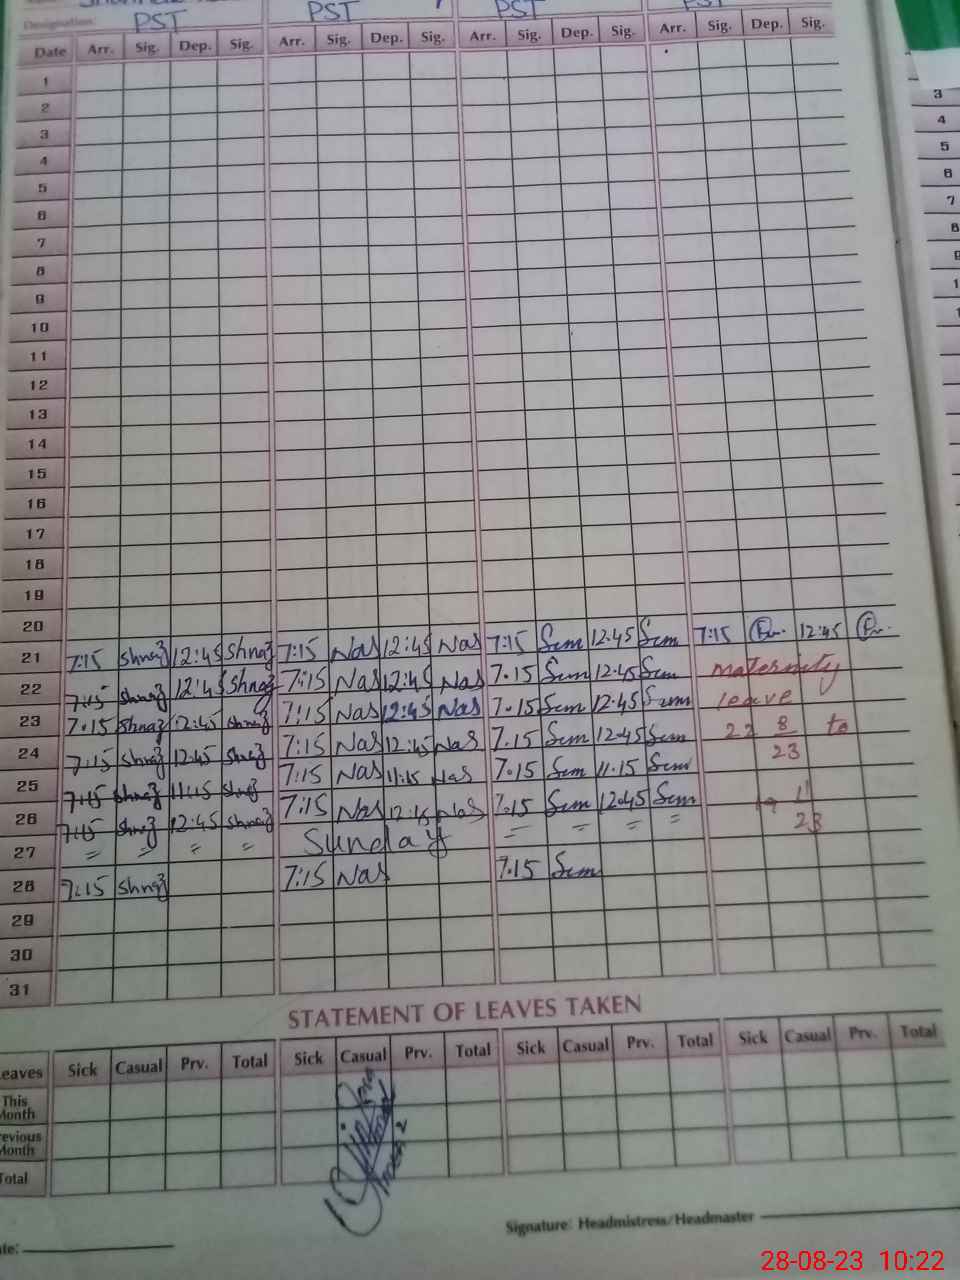 Designation: PST PST PST PST
Date Arr. Sig. Dep. Sig. Arr. Sig. Dep. Sig. Arr. Sig. Dep. Sig. Arr. Sig. Dep. Sig.
1
2
3
3
4
4
5
5
6
6
7
7
8
8
9
10
11
12
13
14
15
16
17
18
19
20
21 7:15 Shnaz 12:45 Shnaz 7:15 Nas 12:45 Nas 7:15 Sem 12:45 Sem 7:15 12:45
22 7:15 Shnaz 12:45 Shnaz 7:15 Nas 12:45 Nas 7.15 Sem 12.45 Sem maternity
23 7.15 Shnaz 12:45 Shnaz 7:15 Nas 12:45 Nas 7.15 Sem 12.45 Sem leave
24 7:15 Shnaz 12:45 Shnaz 7:15 Nas 12:45 Nas 7.15 Sem 12.45 Sem 22 8 to
23
25 7:15 Shnaz 11:15 Shnaz 7:15 Nas 11:15 Nas 7.15 Sem 11.15 Sem
26 7:15 Shnaz 12:45 Shnaz 7:15 Nas 12:45 Nas 7.15 Sem 12.45 Sem
23
27 = = = = Sunday = = = =
28 7:15 Shnaz 7:15 Nas 7.15 Sem
29
30
31
STATEMENT OF LEAVES TAKEN
Leaves Sick Casual Prv. Total Sick Casual Prv. Total Sick Casual Prv. Total Sick Casual Prv. Total
This Month
Previous Month
Total
Signature: Headmistress/Headmaster
Date:
28-08-23 10:22